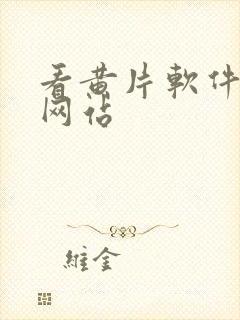 看黄片軟件
网站
維金